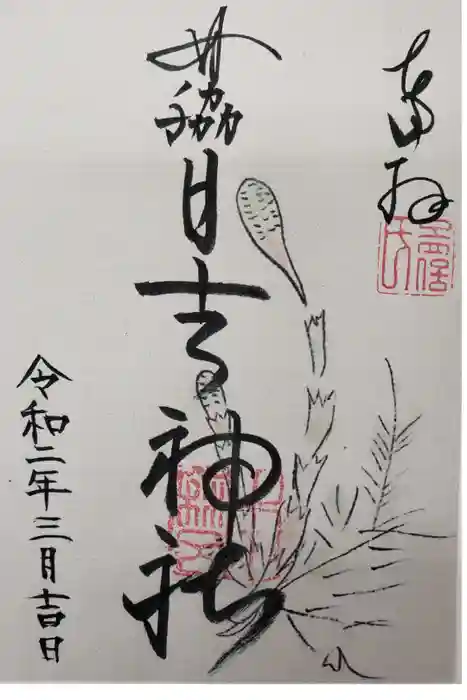 奉拝
荔日吉神社
令和二年三月吉日